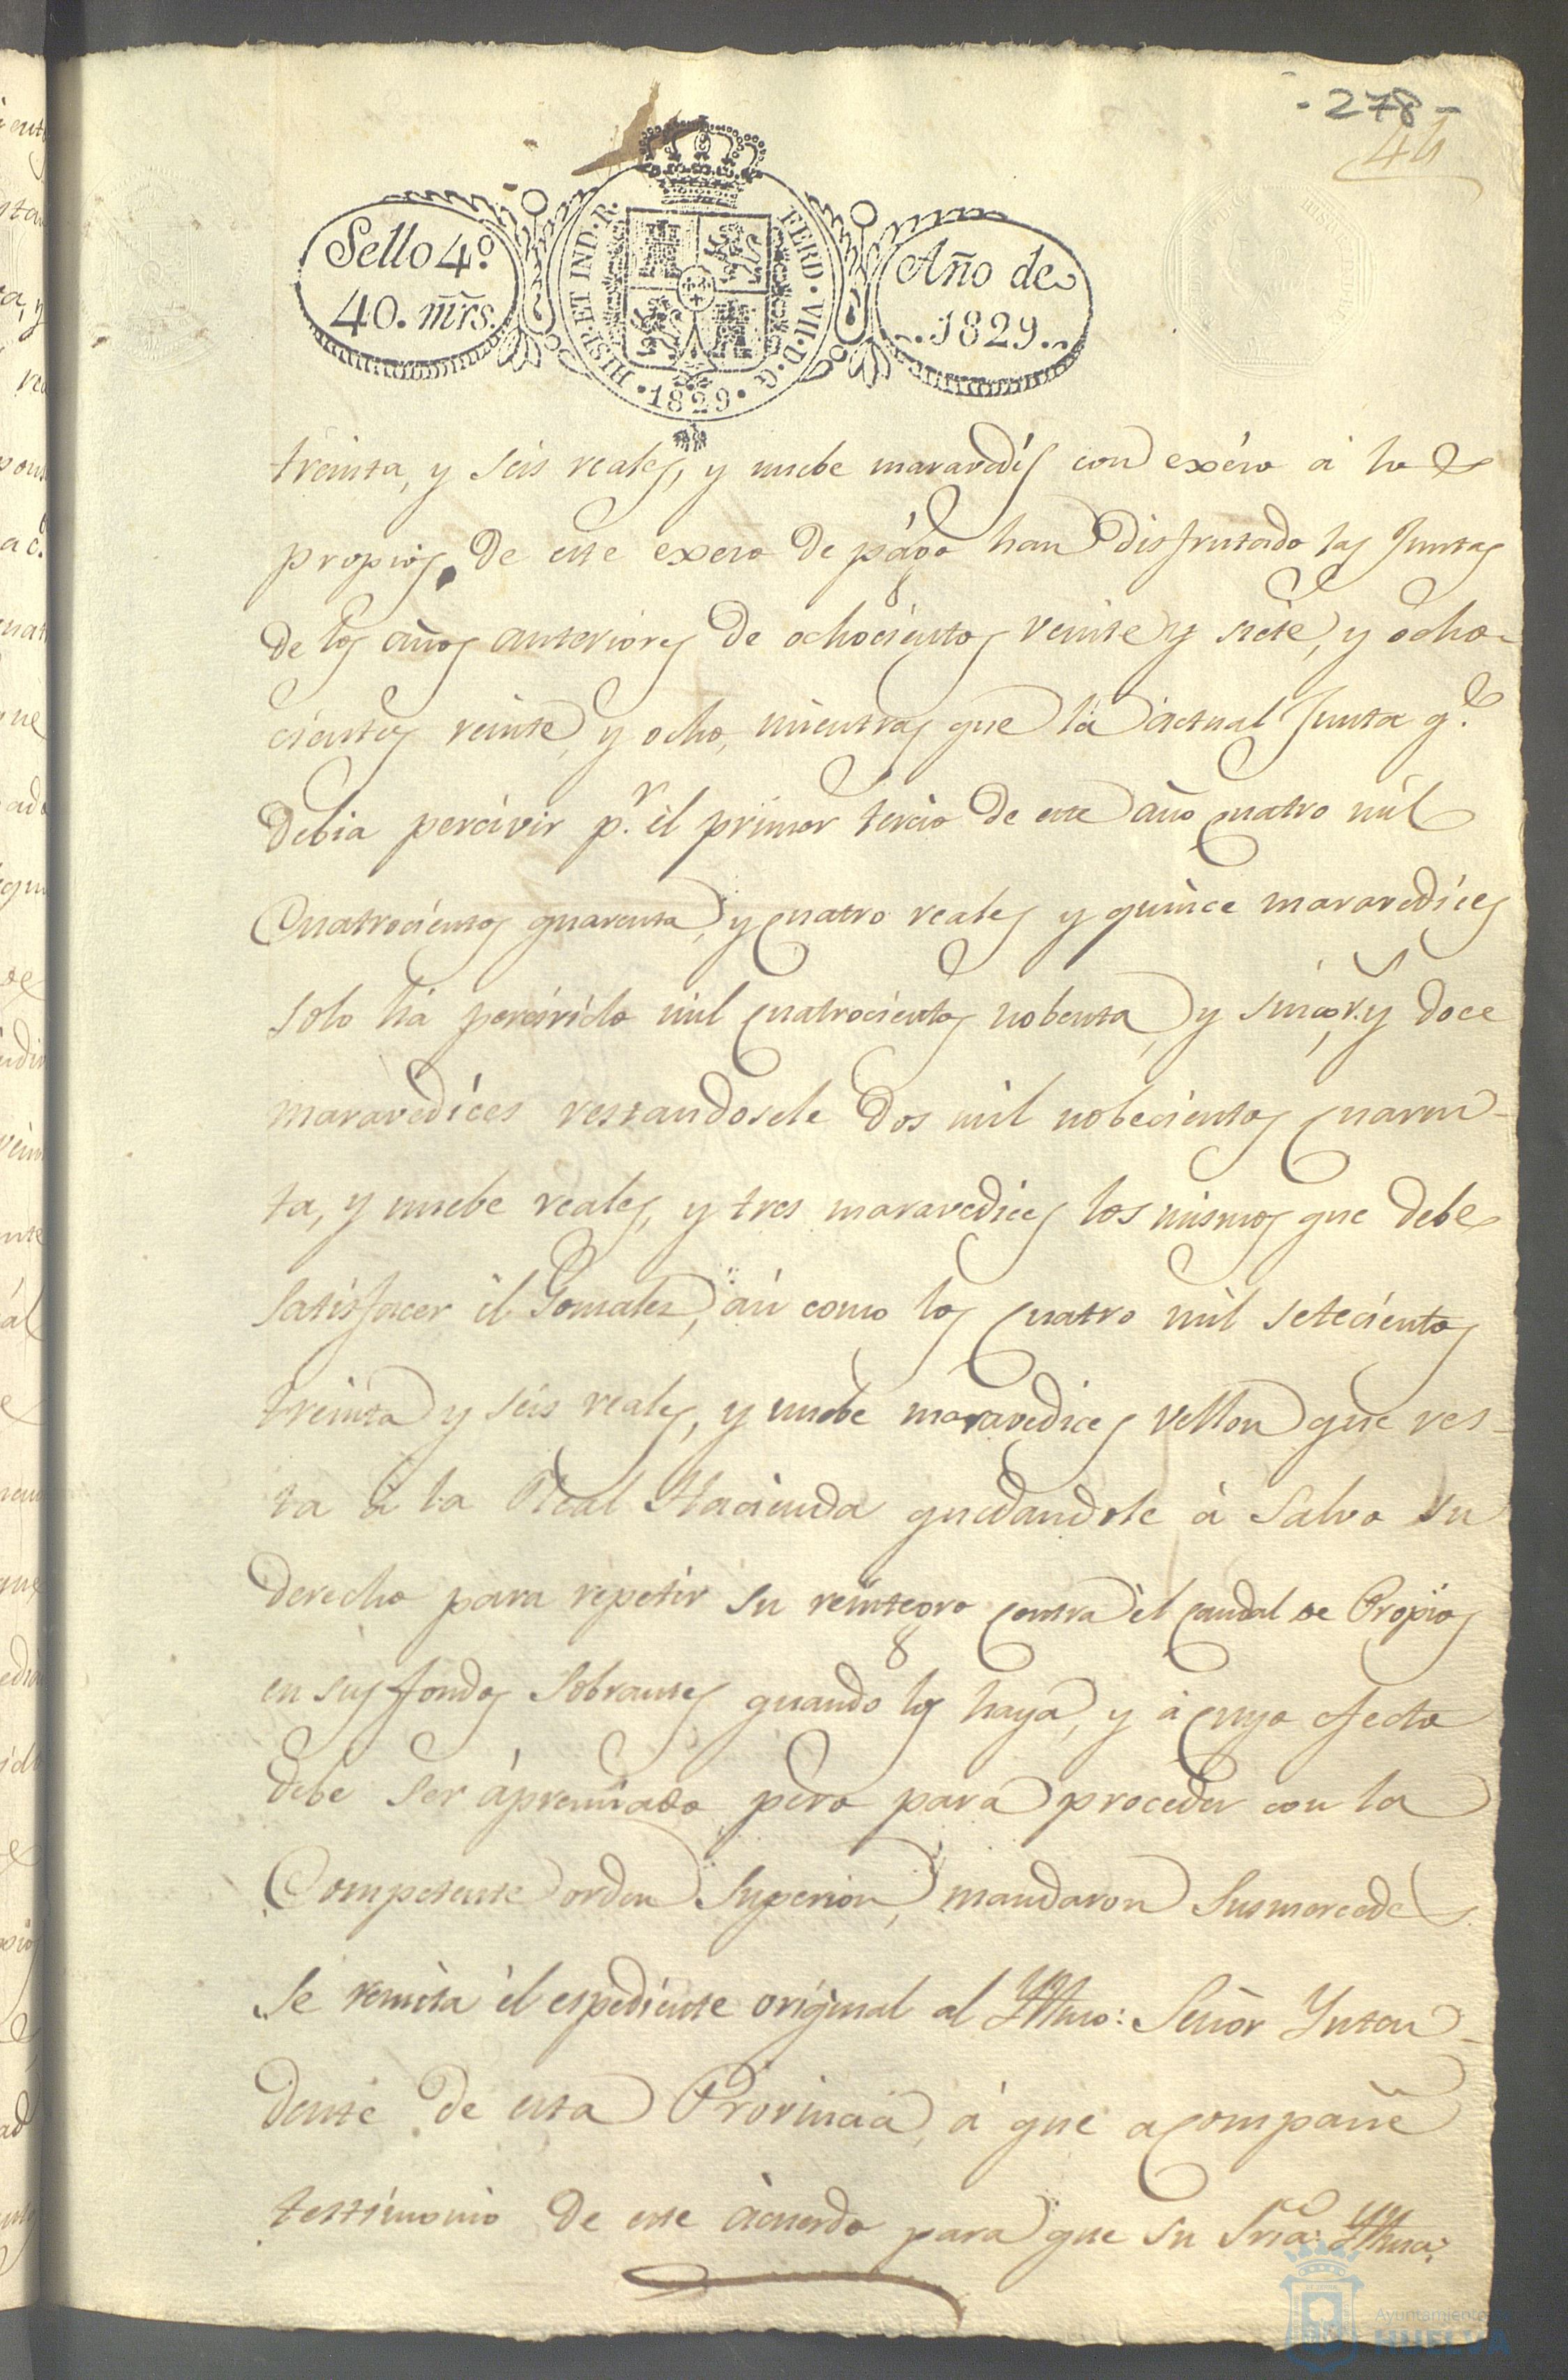 - 278 -
44
Sello 4.º
40. mrs.
HISP. ET IND. R.
FERD. VII. D. G.
1829
Año de
1829
treinta, y seis reales, y nuebe maravedis con exéso á lo de
propios, De este exeso de págo han disfrutado las Juntas
de los años anteriores de ochocientos veinte y siete, y ocho-
cientos veinte, y ocho, mientras que la actual Junta q.e
debia percivir p.r el primer tercio de este año quatro mil
Cuatrocientos quarenta, y quatro reales y quince maravedices
solo há percivido mil quatrocientos nobenta, y sinco r.s y doce
maravedices restandosele dos mil nobecientos quaren-
ta, y nuebe reales, y tres maravedices los mismos que debe
satisfacer el Gonzalez, asi como los quatro mil setecientos
treinta y seis reales, y nuebe maravedices vellon que res-
ta á la Real Hacienda quedandole á salvo su
derecho para repetir su reintegro contra él caudal de Propios
en sus fondos sobrantes quando los haya, y á cuyo efecto
debe ser ápremiado pero para proceder con la
Competente orden Superior, mandaron Susmercedes
se remita él espediente original al Yllmo: Señor Ynten-
dente de esta Provincia, á que acompañe
testimonio de este ácuerdo para que su Sria: Yllma:
Ayuntamiento
HUELVA